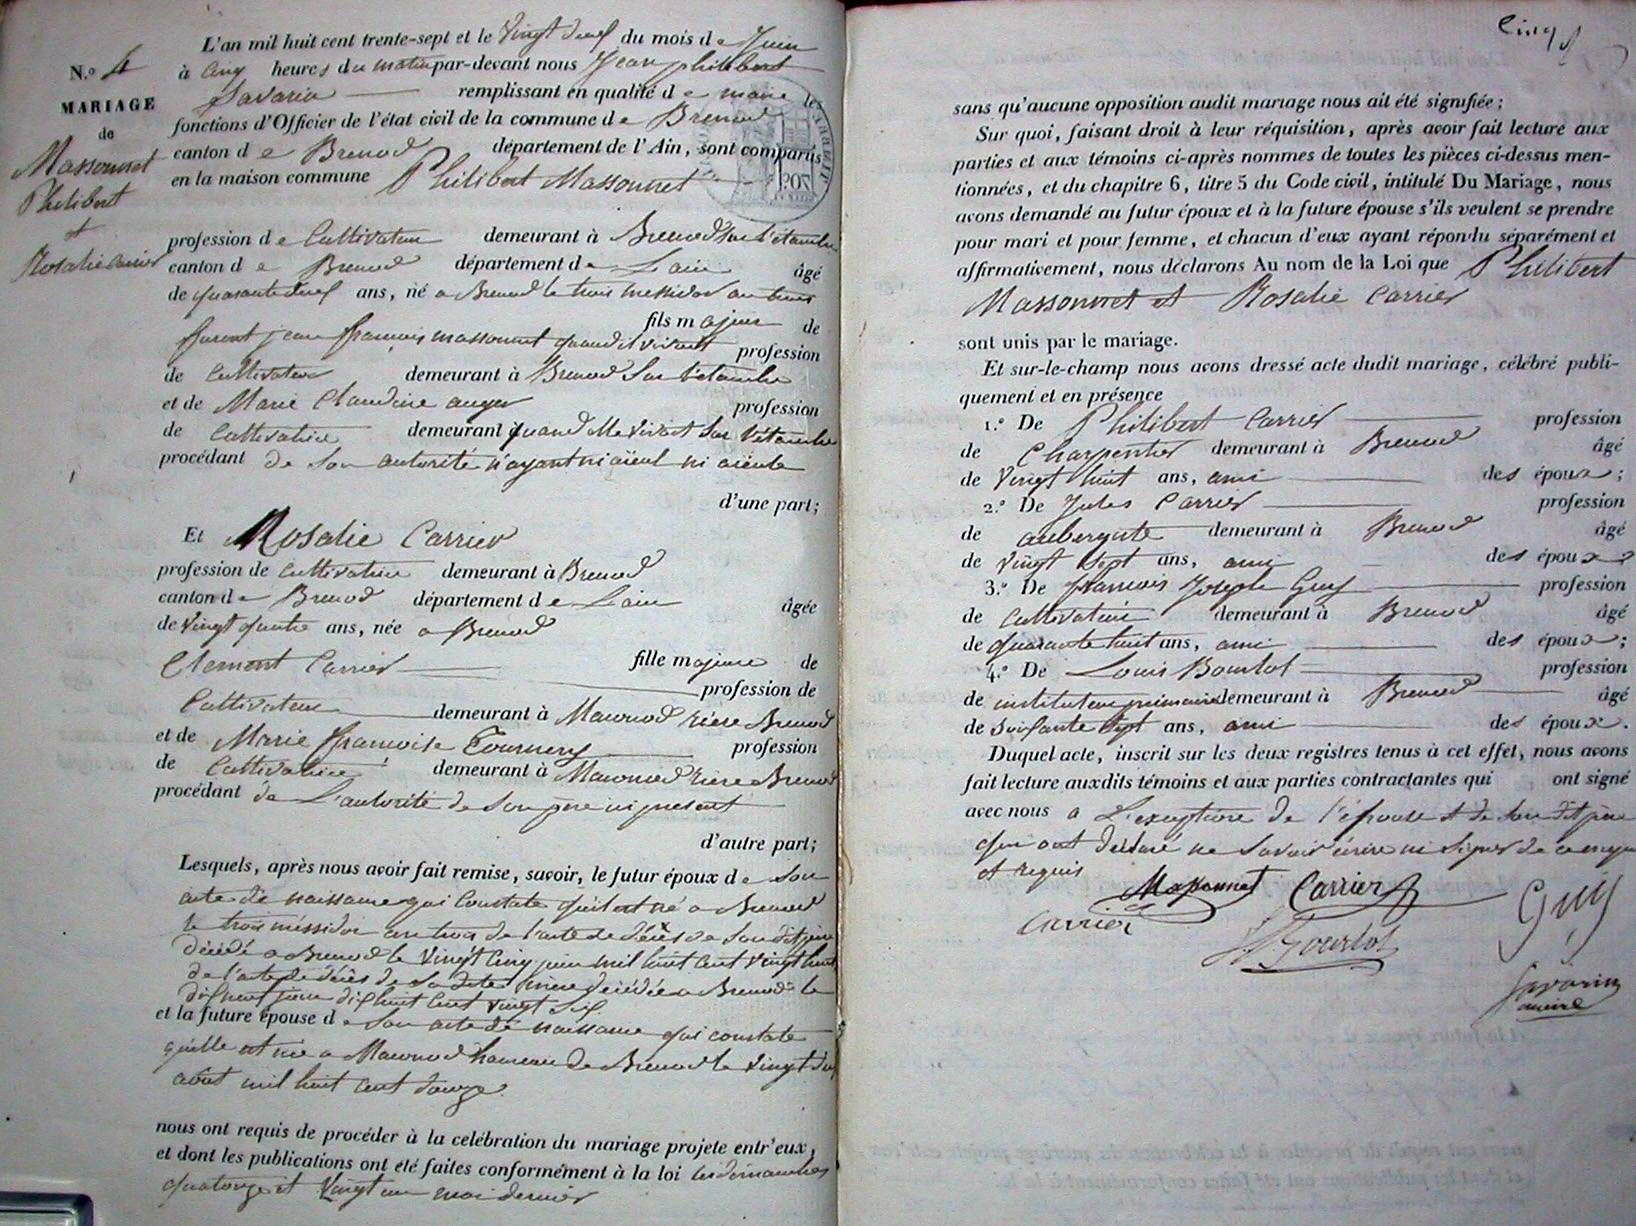 N.º 4
MARIAGE
de
Massonnet
Philibert
et
Rosalie Carrier
L'an mil huit cent trente-sept et le Vingt deux du mois de Juin
à Cinq heures du matin par-devant nous Jean philibert
Savarin remplissant en qualité de maire les
fonctions d'Officier de l'état civil de la commune de Brenod
canton de Brenod département de l'Ain, sont comparus
en la maison commune Philibert Massonnet
profession de Cultivateur demeurant à Brenod sur Létanche
canton de Brenod département de Lain âgé
de quarante deux ans, né a Brenod le trois messidor an trois
fils majeur de
furent jean françois massonnet quand il vivait profession
de Cultivateur demeurant à Brenod Sur Létanche
et de Marie Claudine auger profession
de Cultivatrice demeurant quand elle vivait Sur Létanche
procédant de Son autorité n'ayant ni aïeul ni aïeule
d'une part;
Et Rosalie Carrier
profession de Cultivatrice demeurant à Brenod
canton de Brenod département de Lain âgée
de Vingt quatre ans, née a Brenod
Clement Carrier fille majeure de
profession de
Cultivateur demeurant à Macornod rière Brenod
et de Marie françoise Tournery profession
de Cultivatrice demeurant à Macornod rière Brenod
procédant de L'autorité de Son père ici présent
d'autre part;
Lesquels, après nous avoir fait remise, savoir, le futur époux de Son
acte de naissance qui Constate qu'il est né a Brenod
le trois messidor an trois de l'acte de décès de Son dit père
décédé a Brenod le Vingt Cinq juin mil huit Cent Vingt huit
de l'acte de décès de Sa dite mère décédée a Brenod le
dix huit Cent Vingt Six
et la future épouse de Son acte de naissance qui constate
qu'elle est née a Macornod hameau de Brenod le Vingt
août mil huit cent douze.
nous ont requis de procéder à la celébration du mariage projete entr'eux,
et dont les publications ont été faites conformément à la loi les dimanches
quatorze et Vingt un mai dernier
Cinq
sans qu'aucune opposition audit mariage nous ait été signifiée;
Sur quoi, faisant droit à leur réquisition, après avoir fait lecture aux
parties et aux témoins ci-après nommes de toutes les pièces ci-dessus men-
tionnées, et du chapitre 6, titre 5 du Code civil, intitulé Du Mariage, nous
avons demandé au futur époux et à la future épouse s'ils veulent se prendre
pour mari et pour femme, et chacun d'eux ayant répondu séparément et
affirmativement, nous déclarons Au nom de la Loi que Philibert
Massonnet et Rosalie Carrier
sont unis par le mariage.
Et sur-le-champ nous avons dressé acte dudit mariage, célébré publi-
quement et en présence
1.º De Philibert Carrier profession
de Charpentier demeurant à Brenod âgé
de Vingt huit ans, ami des époux;
2.º De Jules Carrier profession
de aubergiste demeurant à Brenod âgé
de vingt Sept ans, ami des époux
3.º De francois Joseph Guy profession
de Cultivateur demeurant à Brenod âgé
de quarante huit ans, ami des époux;
4.º De Louis Bourlot profession
de instituteur primaire demeurant à Brenod âgé
de Soixante Sept ans, ami des époux.
Duquel acte, inscrit sur les deux registres tenus à cet effet, nous avons
fait lecture auxdits témoins et aux parties contractantes qui ont signé
avec nous a L'exeption de l'épouse et de Son dit père
qui ont déclaré ne Savoir écrire ni Signer de ce enquis
et requis
Massonnet Carrier Guy
Carrier
Bourlot
Savarin
maire